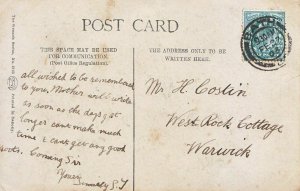 POST CARD
THIS SPACE MAY BE USED
FOR COMMUNICATION
(Post Office Regulation).
THE ADDRESS ONLY TO BE
WRITTEN HERE.
all wished to be remembered
to you, Mother will write
as soon as the days get
longer cant make much
time & cant get any good
Coming Sir
Yours
Mr. H. Costin
West Rock Cottage
Warwick